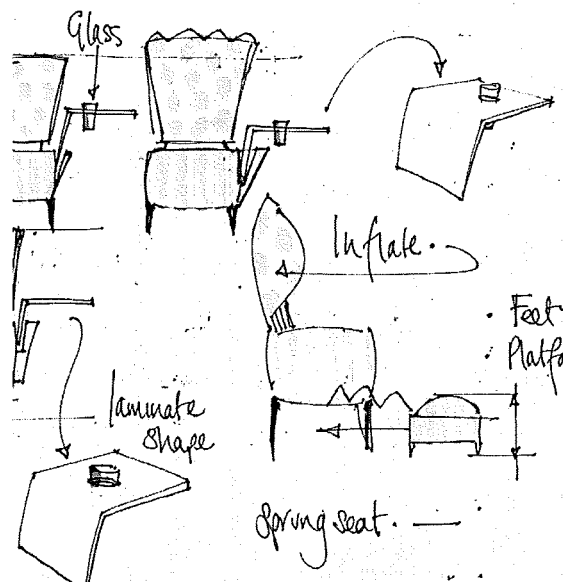 Glass
Inflate.
• Feet
• Platfo
laminate
shape
Sprung seat.